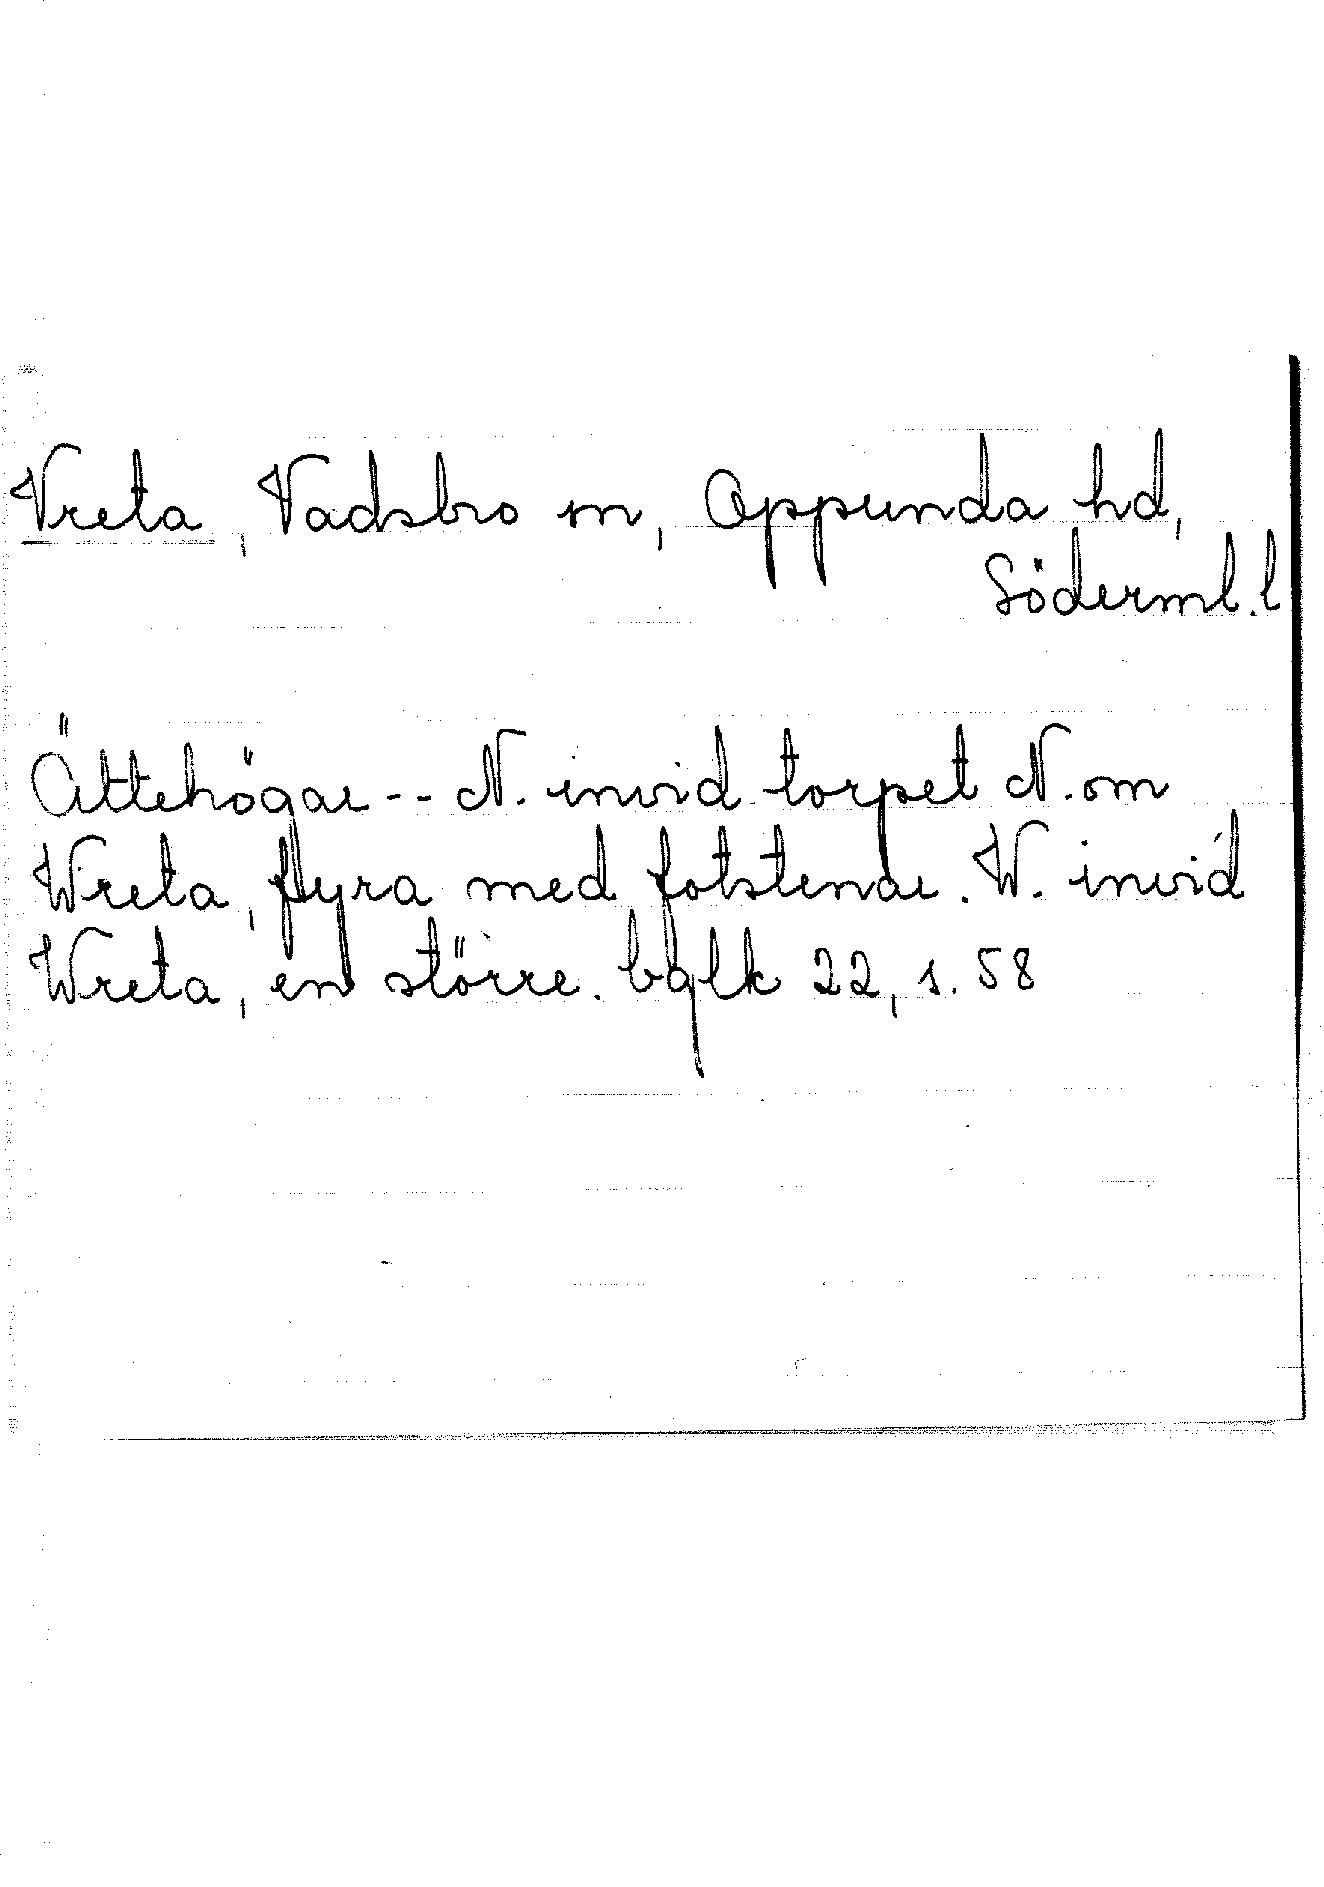 Vreta, Vadsbro sn, Oppunda hd,
Söderml. l
Ättehögar -- N. invid torpet N. om
Wreta, fyra med fotstenar. W. invid
Wreta, en större. balk 22, s. 58